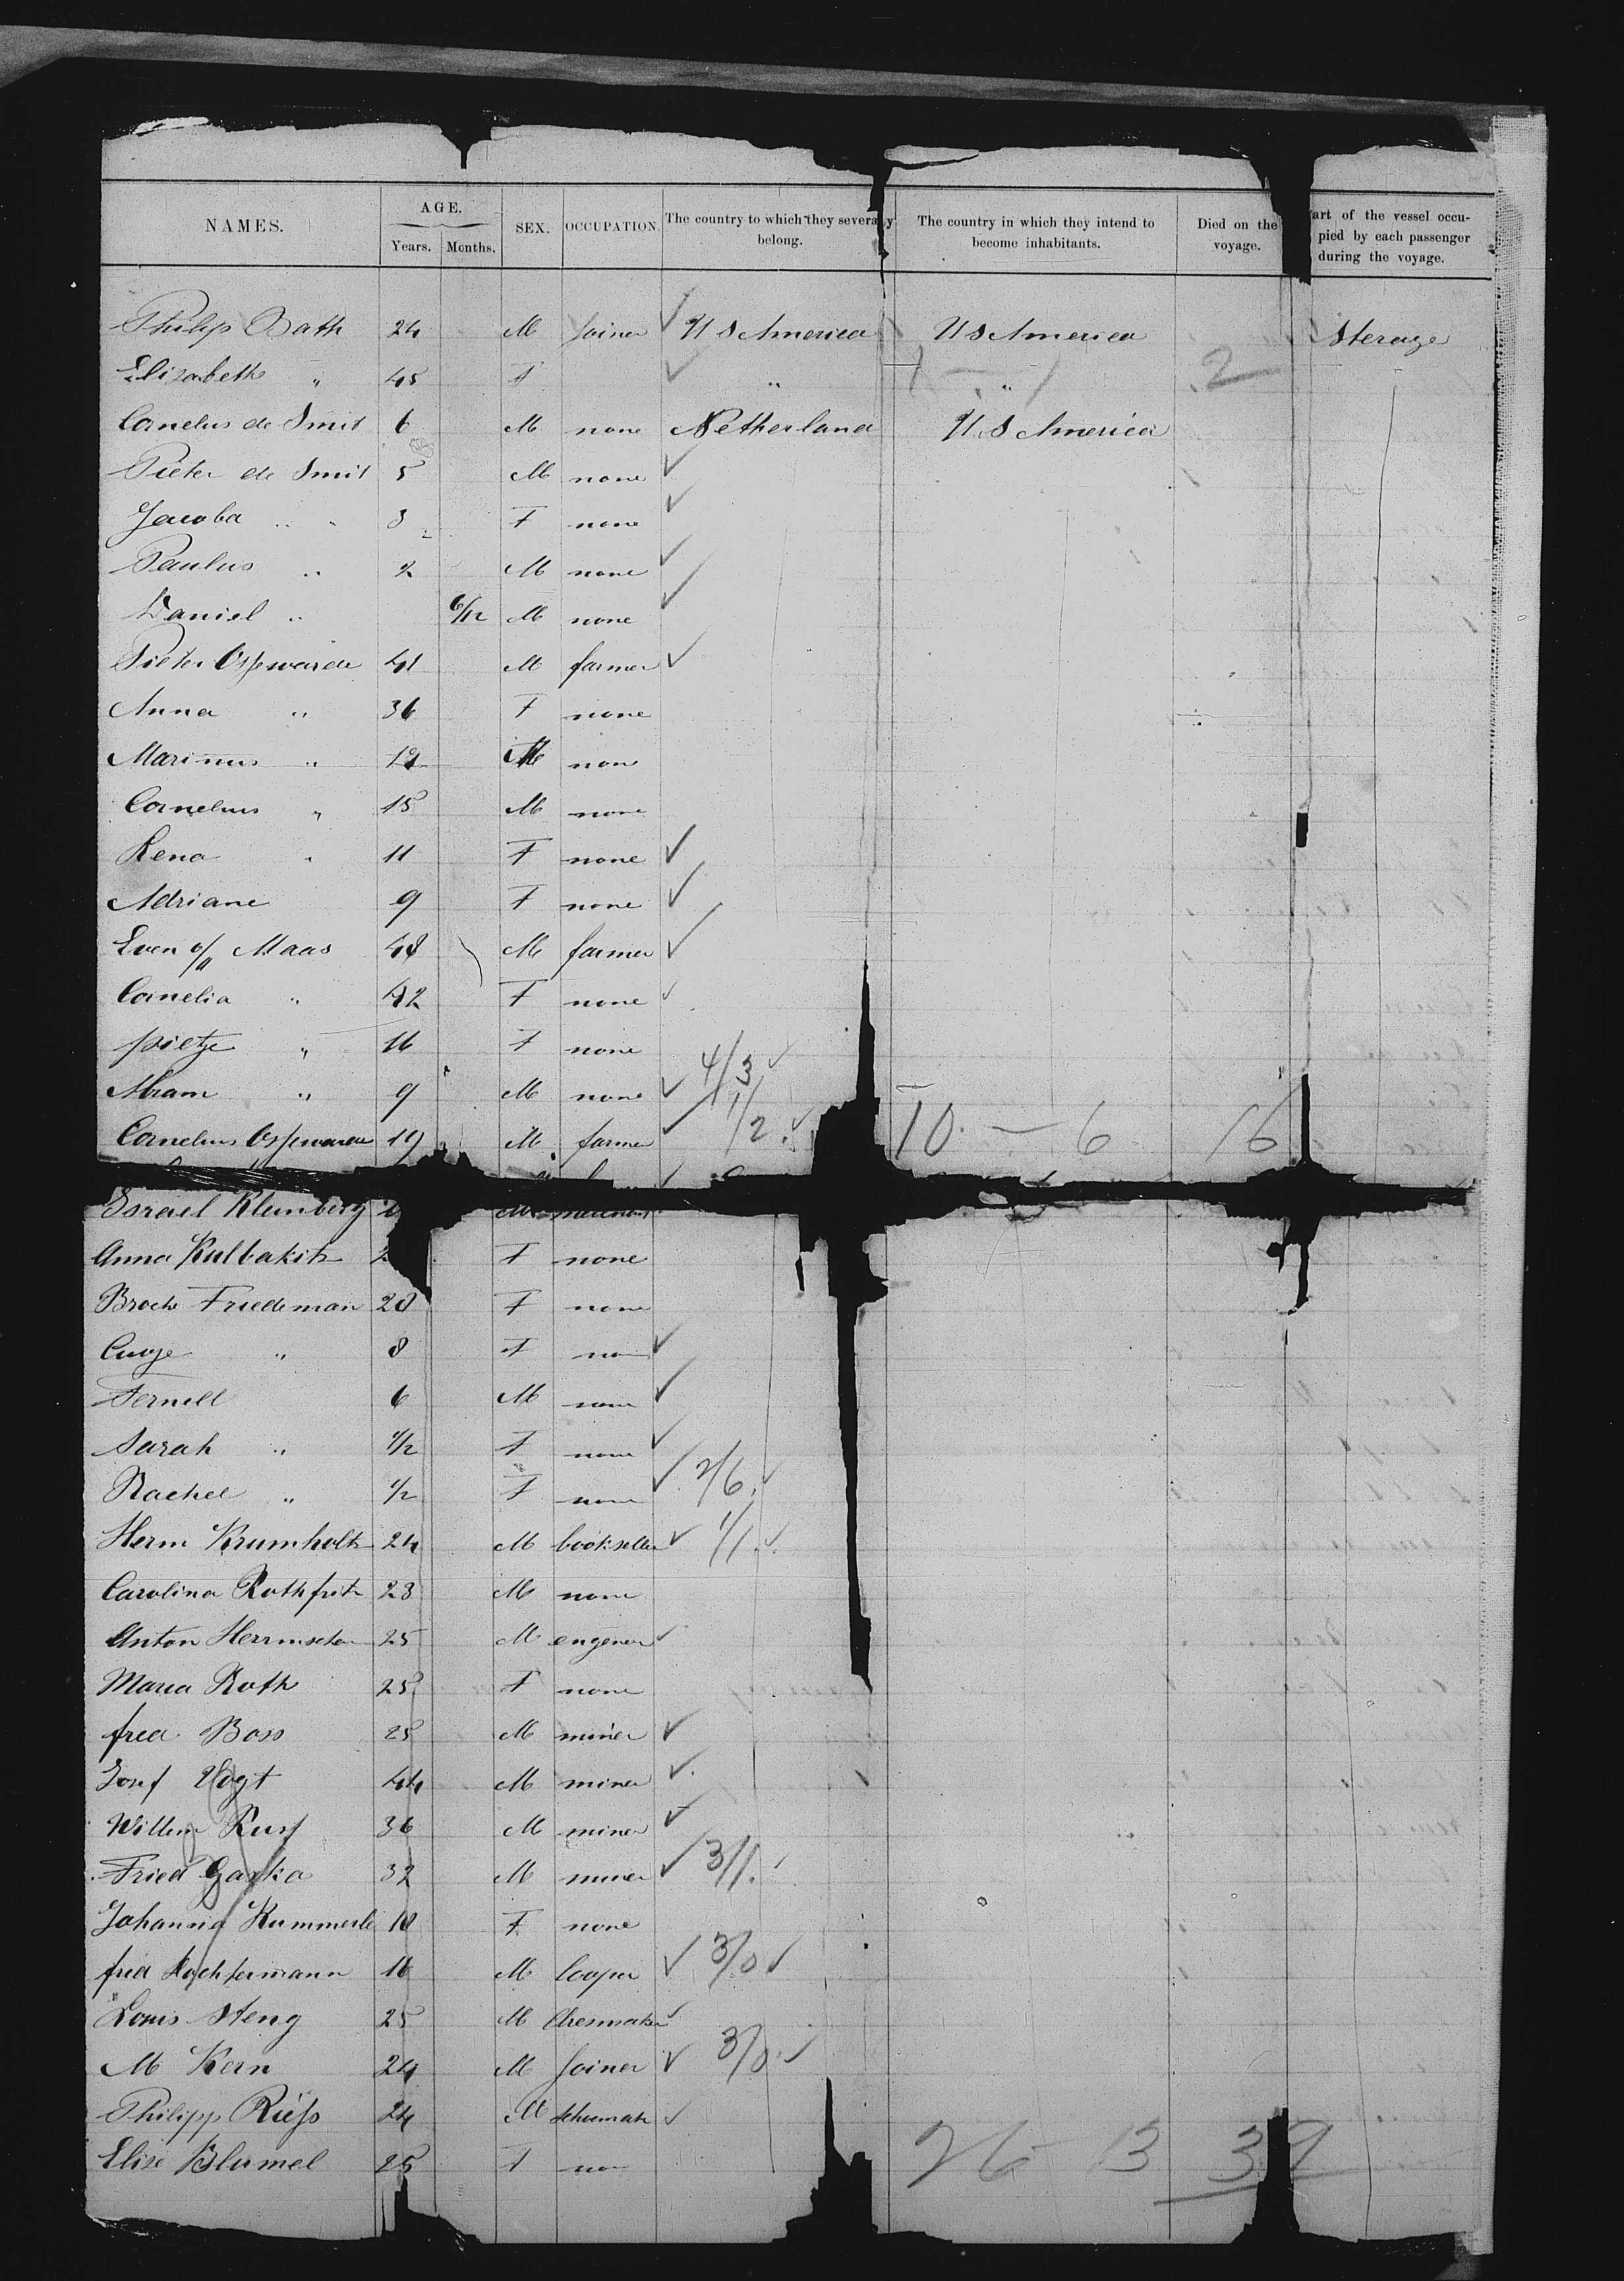 NAMES. AGE. SEX. OCCUPATION. The country to which they severally belong. The country in which they intend to become inhabitants. Died on the voyage. art of the vessel occupied by each passenger during the voyage.
Years. Months.
Philip Bath 24 M Joiner ✓ U S America U S America Sterage
Elizabeth " 45 F ✓ " 1 - " / 2
Cornelus de Smit 6 M none Netherland U.S America
Pieter de Smit 5 M none ✓
Jacoba " " 3 F none ✓
Paulus " 2 M none ✓
Daniel " 6/12 M none ✓
Pieter 41 M farmer ✓
Anna " 36 F none
Marinus " 12 M none
Cornelius " 15 M none
Rena " 11 F none ✓
Adriane 9 F none ✓
Even Maas 48 M farmer ✓
Cornelia " 42 F none ✓
pietje " 16 F none 4/3 ✓
Abram " 9 M none ✓ 1/2 ✓
Cornelius 19 M farmer ✓ 10 - 6 16
Israel Klemberg M
Anna Kulbakitz F none
Broche Friedeman 28 F none
" 8 F none ✓
6 M none ✓
Sarah " 1/2 F none ✓
Rachel " 1/2 F none ✓ 2/6 ✓
Herm Krumholtz 24 M bookseller ✓ 1/1 ✓
Carolina Rothfritz 23 M none
Anton 25 M engener ✓
Maria Roth 25 F none
fred Boss 25 M miner ✓
Josef Vogt 44 M miner ✓
Willem Rusf 36 M miner ✓
Fried Gaska 32 M miner ✓ 3/1 ✓
Johanna Kummerle 18 F none
fred 16 M Cooper ✓ 3/0 ✓
Louis Steng 25 M ✓
M Kern 24 M Joiner ✓ 3/0 ✓
Philipp Riess 24 M Schumak ✓
Elise Blumel 25 F non 26 - 13 39